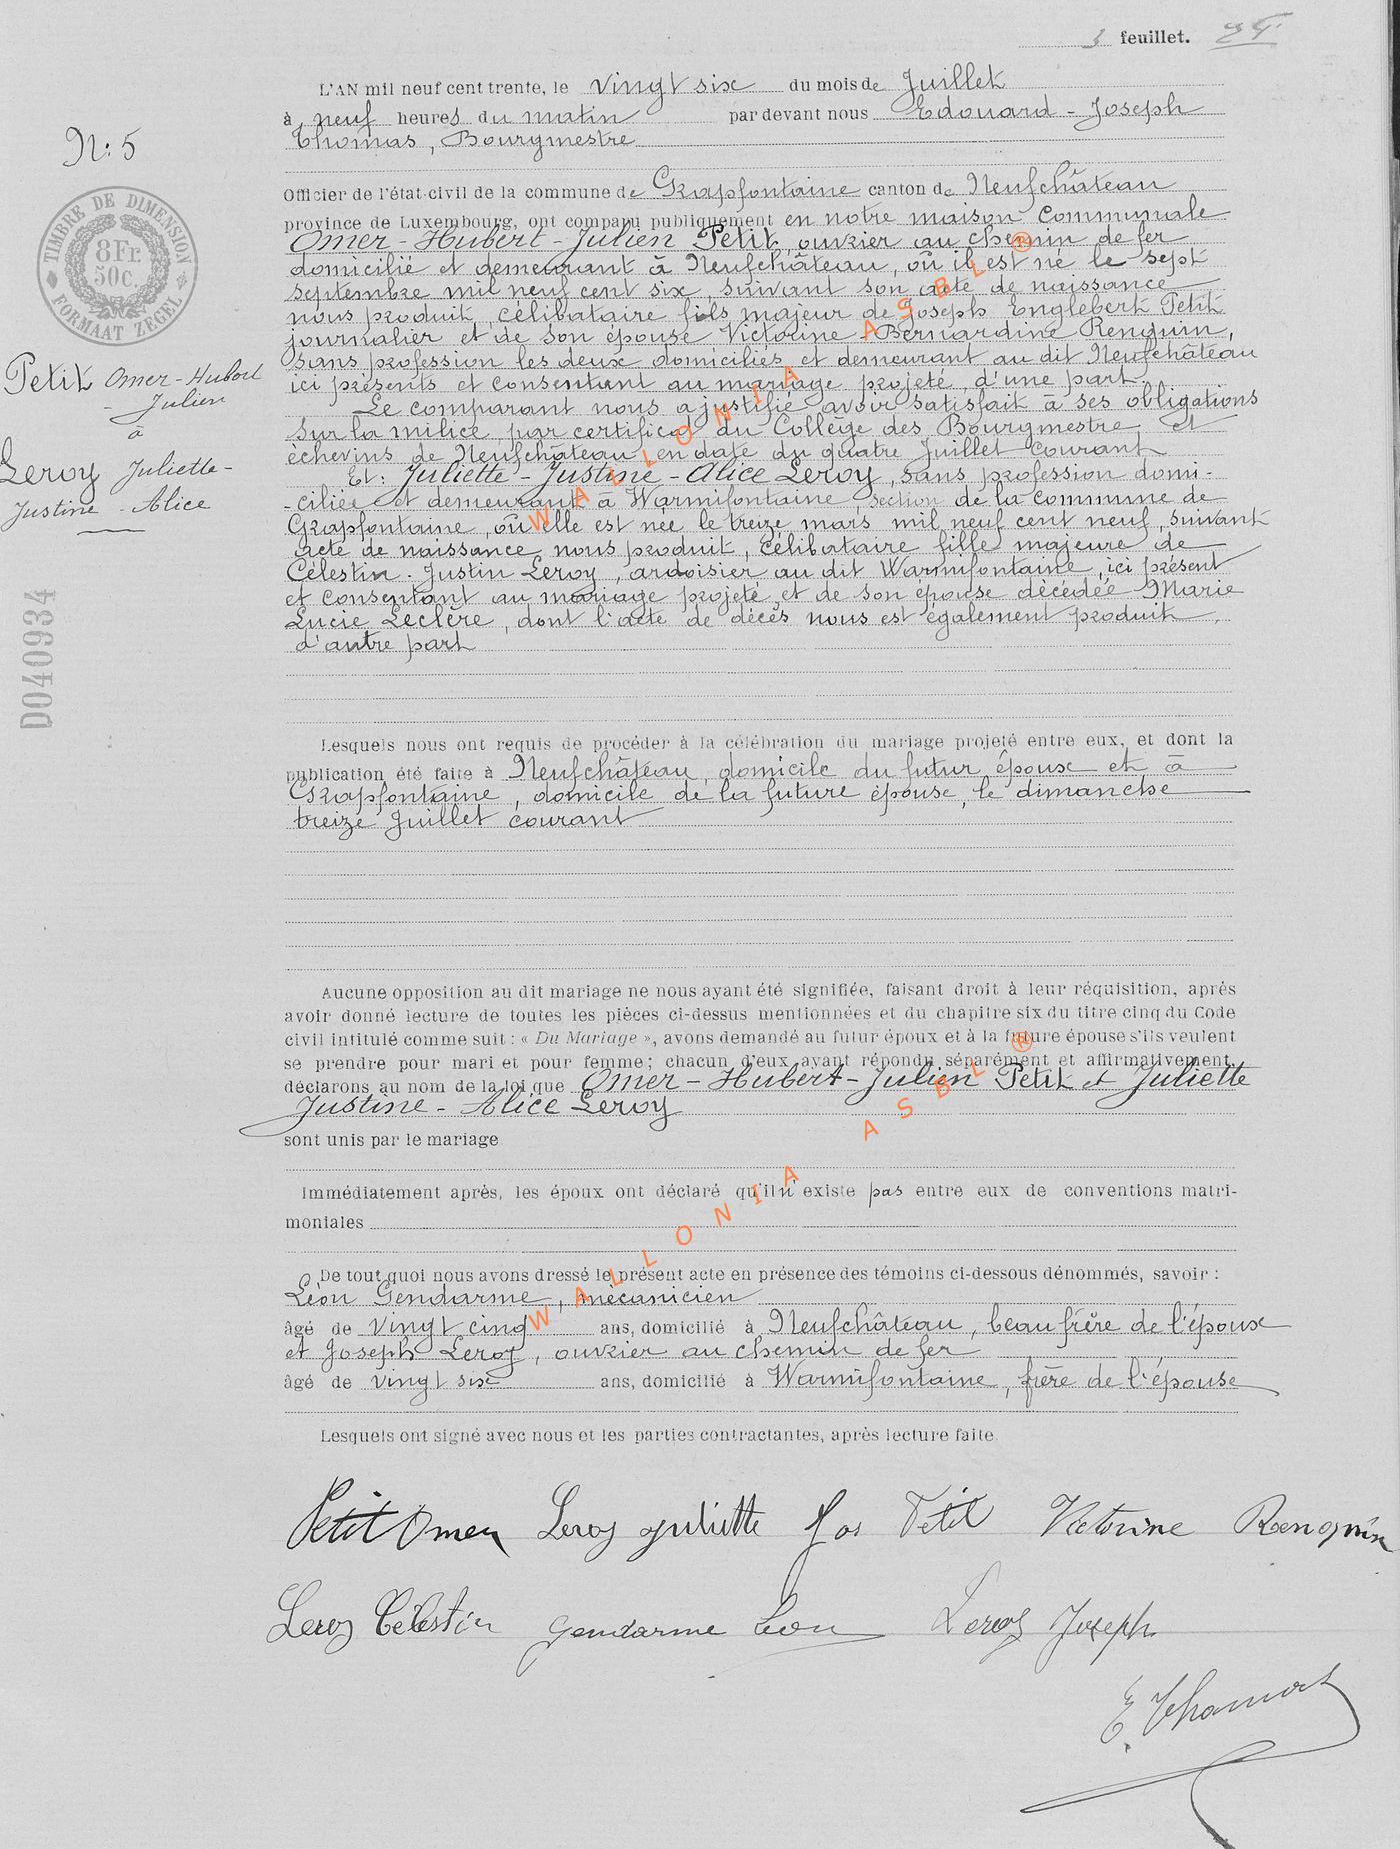 3 feuillet.
L'AN mil neuf cent trente, le vingt six du mois de Juillet
à neuf heures du matin par devant nous Edouard - Joseph
Thomas, Bourgmestre
N: 5
Officier de l'état-civil de la commune de Grapfontaine canton de Neufchâteau
province de Luxembourg, ont comparu publiquement en notre maison communale
Omer - Hubert - Julien Petit, ouvrier au chemin de fer
domicilié et demeurant à Neufchâteau, où il est né le sept
septembre mil neuf cent six, suivant son acte de naissance
nous produit, célibataire fils majeur de Joseph Englebert Petit
journalier et de son épouse Victorine Bernardine Renquin,
sans profession les deux domiciliés et demeurant au dit Neufchâteau
ici présents et consentant au mariage projeté, d'une part
Le comparant nous a justifié avoir satisfait à ses obligations
sur la milice par certificat du Collège des Bourgmestre et
échevins de Neufchâteau en date du quatre Juillet courant
Et: Juliette - Justine - Alice Leroy, sans profession domi-
-ciliée et demeurant à Warmifontaine, section de la commune de
Grapfontaine, où elle est née le treize mars mil neuf cent neuf, suivant
acte de naissance nous produit, célibataire fille majeure de
Célestin - Justin Leroy, ardoisier au dit Warmifontaine, ici présent
et consentant au mariage projeté et de son épouse décédée Marie
Lucie Leclère, dont l'acte de décès nous est également produit,
d'autre part
TIMBRE DE DIMENSION
8 Fr.
50 c.
FORMAAT ZEGEL
Petit Omer - Hubert
- Julien
à
Leroy Juliette -
Justine - Alice
D040934
Lesquels nous ont requis de procéder à la célébration du mariage projeté entre eux, et dont la
publication été faite à Neufchâteau, domicile du futur époux et à
Grapfontaine, domicile de la future épouse, le dimanche
treize Juillet courant
Aucune opposition au dit mariage ne nous ayant été signifiée, faisant droit à leur réquisition, après
avoir donné lecture de toutes les pièces ci-dessus mentionnées et du chapitre six du titre cinq du Code
civil intitulé comme suit : « Du Mariage », avons demandé au futur époux et à la future épouse s'ils veulent
se prendre pour mari et pour femme; chacun d'eux ayant répondu séparément et affirmativement,
déclarons au nom de la loi que Omer - Hubert - Julien Petit et Juliette
Justine - Alice Leroy
sont unis par le mariage
Immédiatement après, les époux ont déclaré qu'il n'existe pas entre eux de conventions matri-
moniales
De tout quoi nous avons dressé le présent acte en présence des témoins ci-dessous dénommés, savoir :
Léon Gendarme, mécanicien
âgé de vingt cinq ans, domicilié à Neufchâteau, beau frère de l'époux
et Joseph Leroy, ouvrier au chemin de fer
âgé de vingt six ans, domicilié à Warmifontaine, frère de l'épouse
Lesquels ont signé avec nous et les parties contractantes, après lecture faite
Petit Omer Leroy Juliette Jos Petit Victorine Renquin
Leroy Célestin Gendarme Léon Leroy Joseph
E. Thomas
WALLONIA ASBL ®
WALLONIA ASBL ®